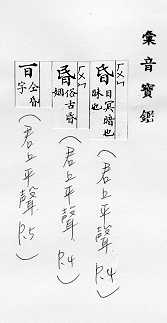 彙音寶鑑
昏 ㄏㄨㄣ 日冥暗也
昧也
(君上平聲 P.4)
昬 ㄏㄨㄣ 俗古昏
姻
(君上平聲 P.4)
仝昏
字
(君上平聲 P.5)